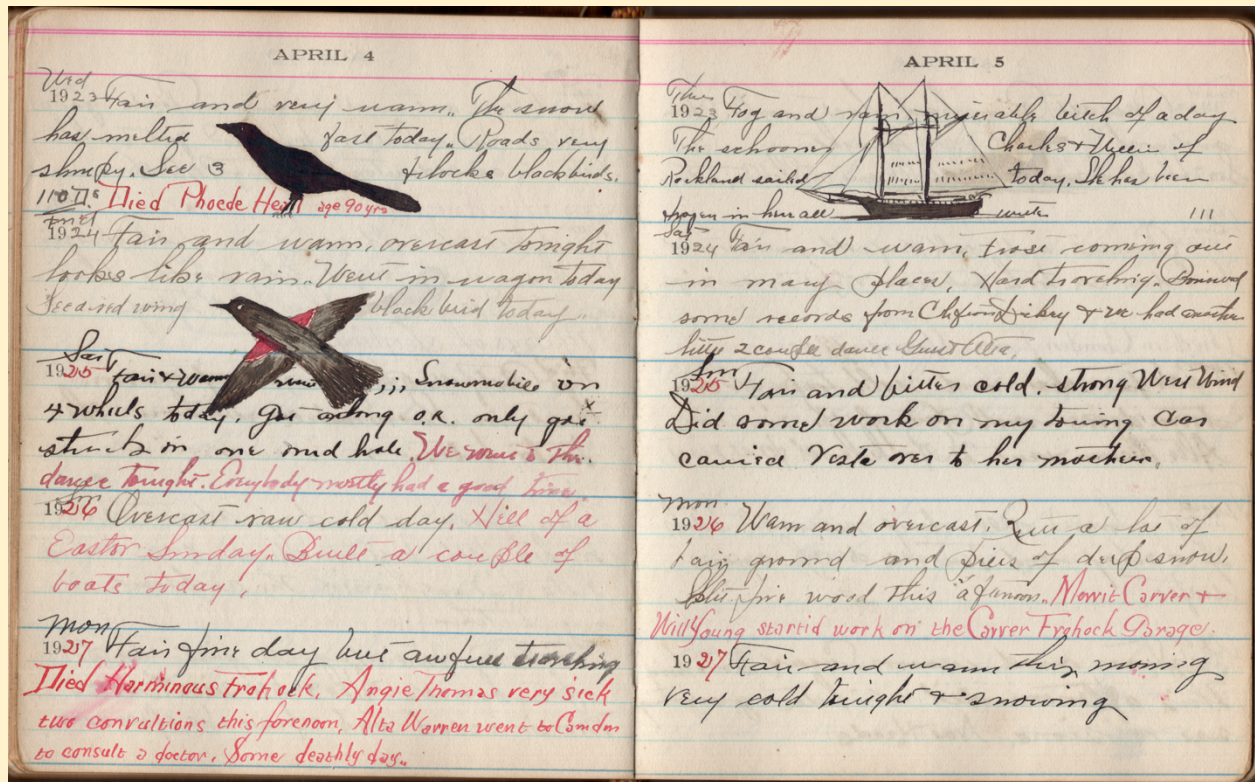 APRIL 4
Wed
1923 Fair and very warm. The snow
has melted fast today. Roads very
slumpy. See 3 flocks blackbirds.
Died Phoede Heall age 90 yrs
1924 Fair and warm, overcast tonight
looks like rain. Went in wagon today
See a red wing black bird today.
Sat
1925 Fair & warm Snowmobile on
4 wheels today. Got along O.K. only got
stuck in one mud hole. We went to the
dance tonight. Everybody mostly had a good time.
Sun
1926 Overcast raw cold day. Hell of a
Easter Sunday. Built a couple of
boats today.
Mon
1927 Fair fine day but awfull traveling
Died Harminous Frohock. Angie Thomas very sick
two convultions this forenoon, Alta Warren went to Camden
to consult a doctor. Some deathly day.
APRIL 5
Thur
1923 Fog and rain, miserable bitch of a day
The schooner Charles & of
Rockland sailed today. She has been
frozen in here all winter !!!
Sat
1924 Fair and warm, frost coming out
in many places. Hard traveling.
some records from Dickery & we had another
little 2 couple dance
Sun
1925 Fair and bitter cold. strong West Wind
Did some work on my touring car
carried Vesta over to her mothers.
Mon
1926 Warm and overcast. Quite a lot of
bair ground and piles of deep snow.
Split fire wood this afternoon. Merrit Carver +
Will Young startid work on the Carver Frohock Garage.
1927 Fair and warm this morning
very cold tonight + snowing